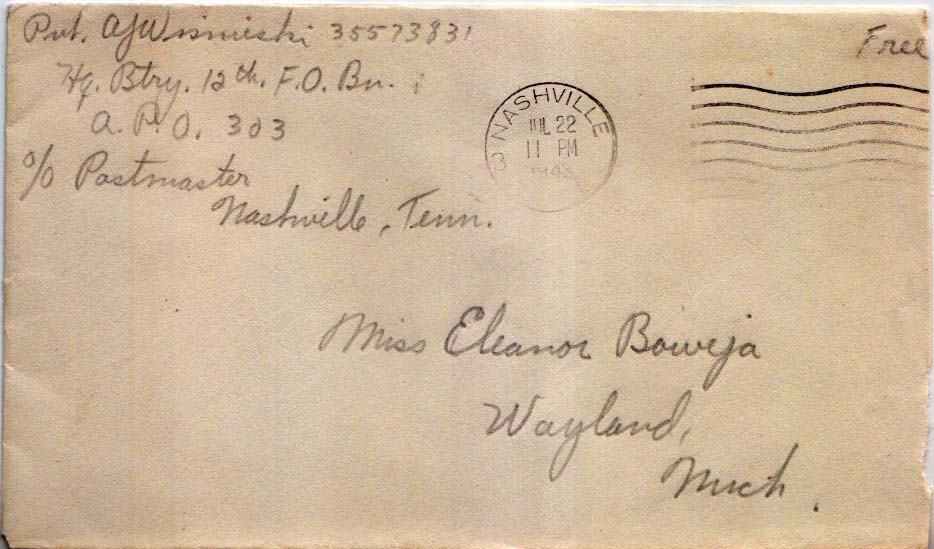 Pvt. AJ Wisnieski 35573831
Free
Hq. Btry. 12th. F.O. Bn.
A.P.O. 303
c/o Postmaster
Nashville, Tenn.
NASHVILLE 3
JUL 22
11 PM
1943
Miss Eleanor Boweja
Wayland,
Mich.